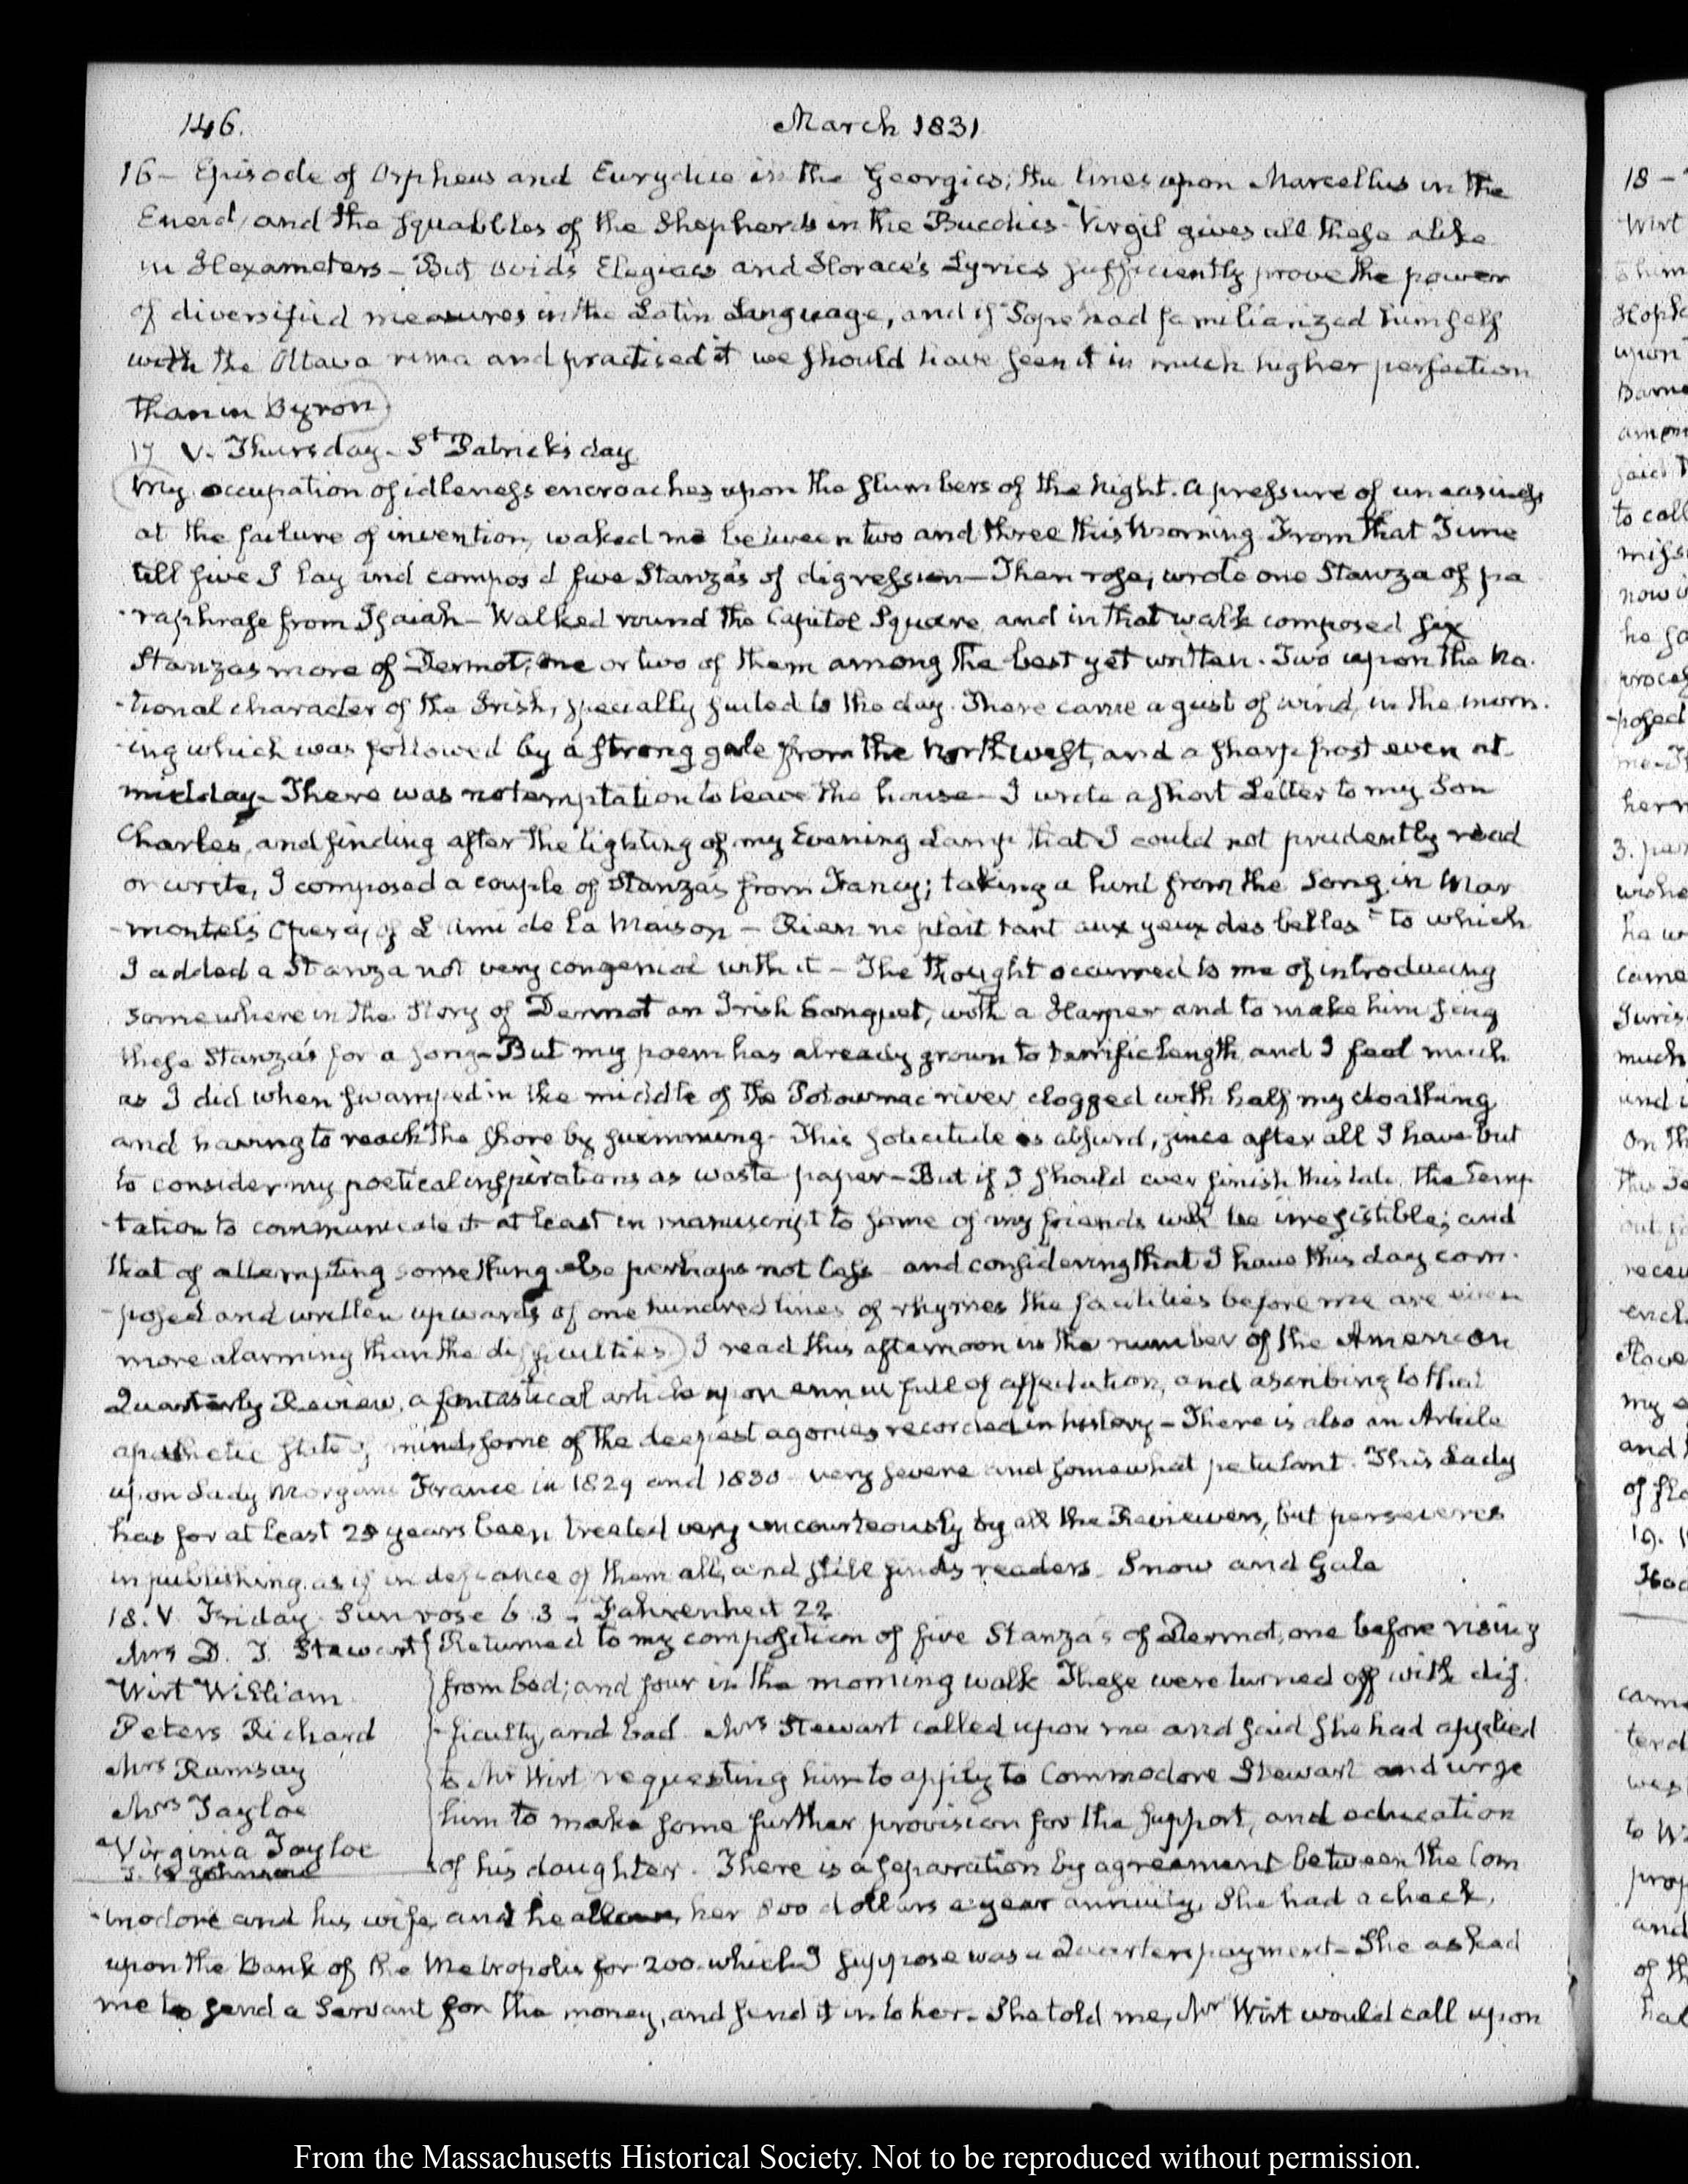 146.
March 1831
16 - Episode of Orpheus and Eurydice in the Georgics; the lines upon Marcellus in the
Eneid, and the squabbles of the Shepherds in the Bucolics - Virgil gives all these alike
in Hexameters - But Ovid's Elegiacs and Horace's Lyrics sufficiently prove the power
of diversified measures in the Latin Language, and if Pope had familiarized himself
with the Ottava rima and practiced it we should have seen it in much higher perfection
than in Byron
17 V. Thursday - St Patrick's day
My occupation of idleness encroaches upon the slumbers of the Night. A pressure of uneasiness
at the failure of invention, waked me between two and three this Morning From that Time
till five I lay and compos'd five Stanza's of digression - Then rose, wrote one Stanza of pa
-raphrase from Isaiah - Walked round the Capitol Square and in that walk composed six
Stanzas more of Dermot, one or two of them among the best yet written. Two upon the Na-
-tional character of the Irish, specially suited to the day. There came a gust of wind, in the morn-
-ing which was followed by a strong gale from the North west, and a sharp frost even at
midday - There was no temptation to leave the house - I wrote a short Letter to my Son
Charles, and finding after the lighting of my Evening Lamp that I could not prudently read
or write, I composed a couple of Stanza's from Fancy; taking a hint from the Song in Mar
-montel's Opera, of L'ami de la Maison - Rien ne plait tant aux yeux des belles - to which
I added a Stanza not very congenial with it - The thought occurred to me of introducing
somewhere in the Story of Dermot an Irish banquet, with a Harper and to make him sing
these Stanza's for a song - But my poem has already grown to terrific length, and I feel much
as I did when swamped in the middle of the Potowmac river clogged with half my cloathing
and having to reach the shore by swimming - This solicitude is absurd, since after all I have but
to consider my poetical inspirations as waste paper - But if I should ever finish this tale, the temp
-tation to communicate it at least in manuscript to some of my friends will be irresistible; and
that of attempting something else perhaps not less and considering that I have this day com-
-posed and written upwards of one hundred lines of rhymes the facilities before me are even
more alarming than the difficulties I read this afternoon in the number of the American
Quarterly Review, a fantastical article upon ennui full of affectation, and ascribing to that
apathetic state of mind some of the deepest agonies recorded in history - There is also an Article
upon Lady Morgans France in 1829 and 1830 very severe and somewhat petulant. This Lady
has for at least 25 years been treated very uncourteously by all the Reviewers, but perseveres
in publishing as if in defiance of them all, and still finds readers. Snow and Gale
18. V Friday. Sun rose 6 3 - Fahrenheit 22
Mrs D. T. Stewart
Wirt William
Peters Richard
Mrs Ramsay
Mrs Tayloe
Virginia Tayloe
Johnson
Returned to my composition of five Stanza's of Dermot, one before rising
from bed; and four in the morning walk These were turned off with dif-
-ficulty, and bad. Mrs Stewart called upon me and said she had applied
to Mr Wirt requesting him to apply to Commodore Stewart and urge
him to make some further provision for the support, and education
of his daughter. There is a separation by agreement between the Com
-modore and his wife, and he allows her 800 dollars a year annuity. She had a check,
upon the Bank of the Metropolis for 200. which I suppose was a Quarters payment - She asked
me to send a Servant for the money, and send it in to her - She told me, Mr Wirt would call upon
From the Massachusetts Historical Society. Not to be reproduced without permission.